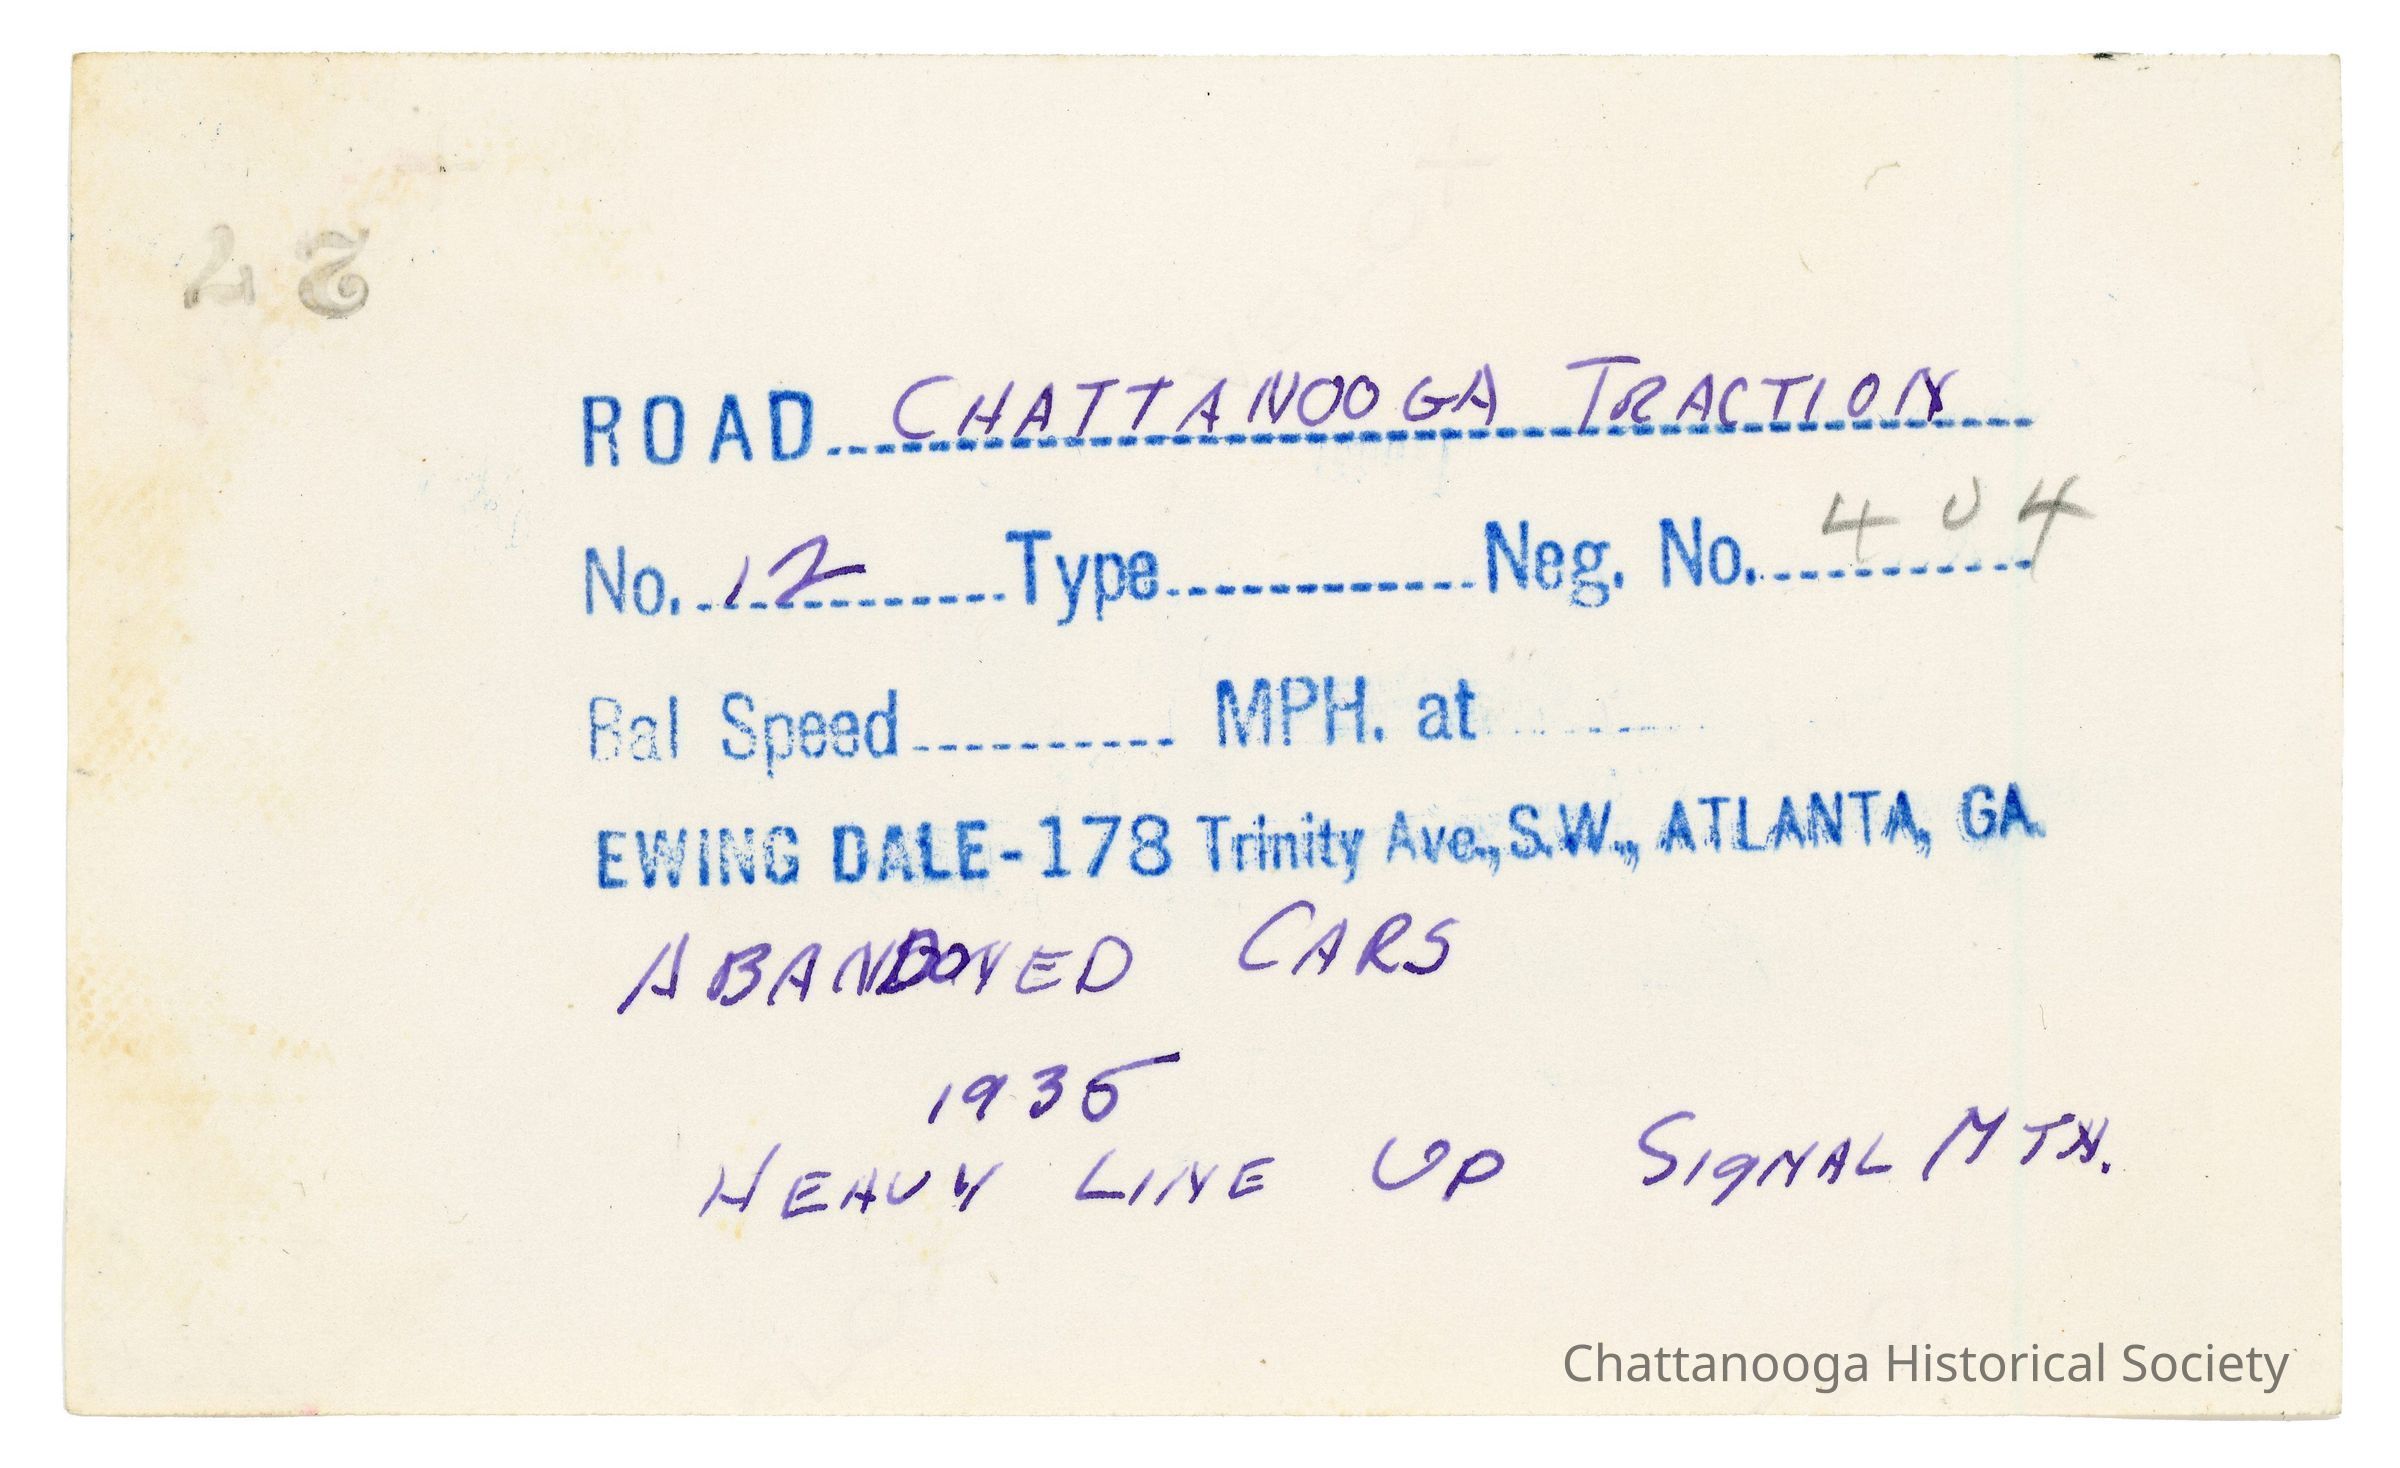 ROAD CHATTANOOGA TRACTION
No. 12 Type Neg. No. 404
Bal Speed MPH. at
EWING DALE-178 Trinity Ave., S.W., ATLANTA, GA.
ABANDONED CARS
1935
HEAVY LINE UP SIGNAL MTN.
Chattanooga Historical Society